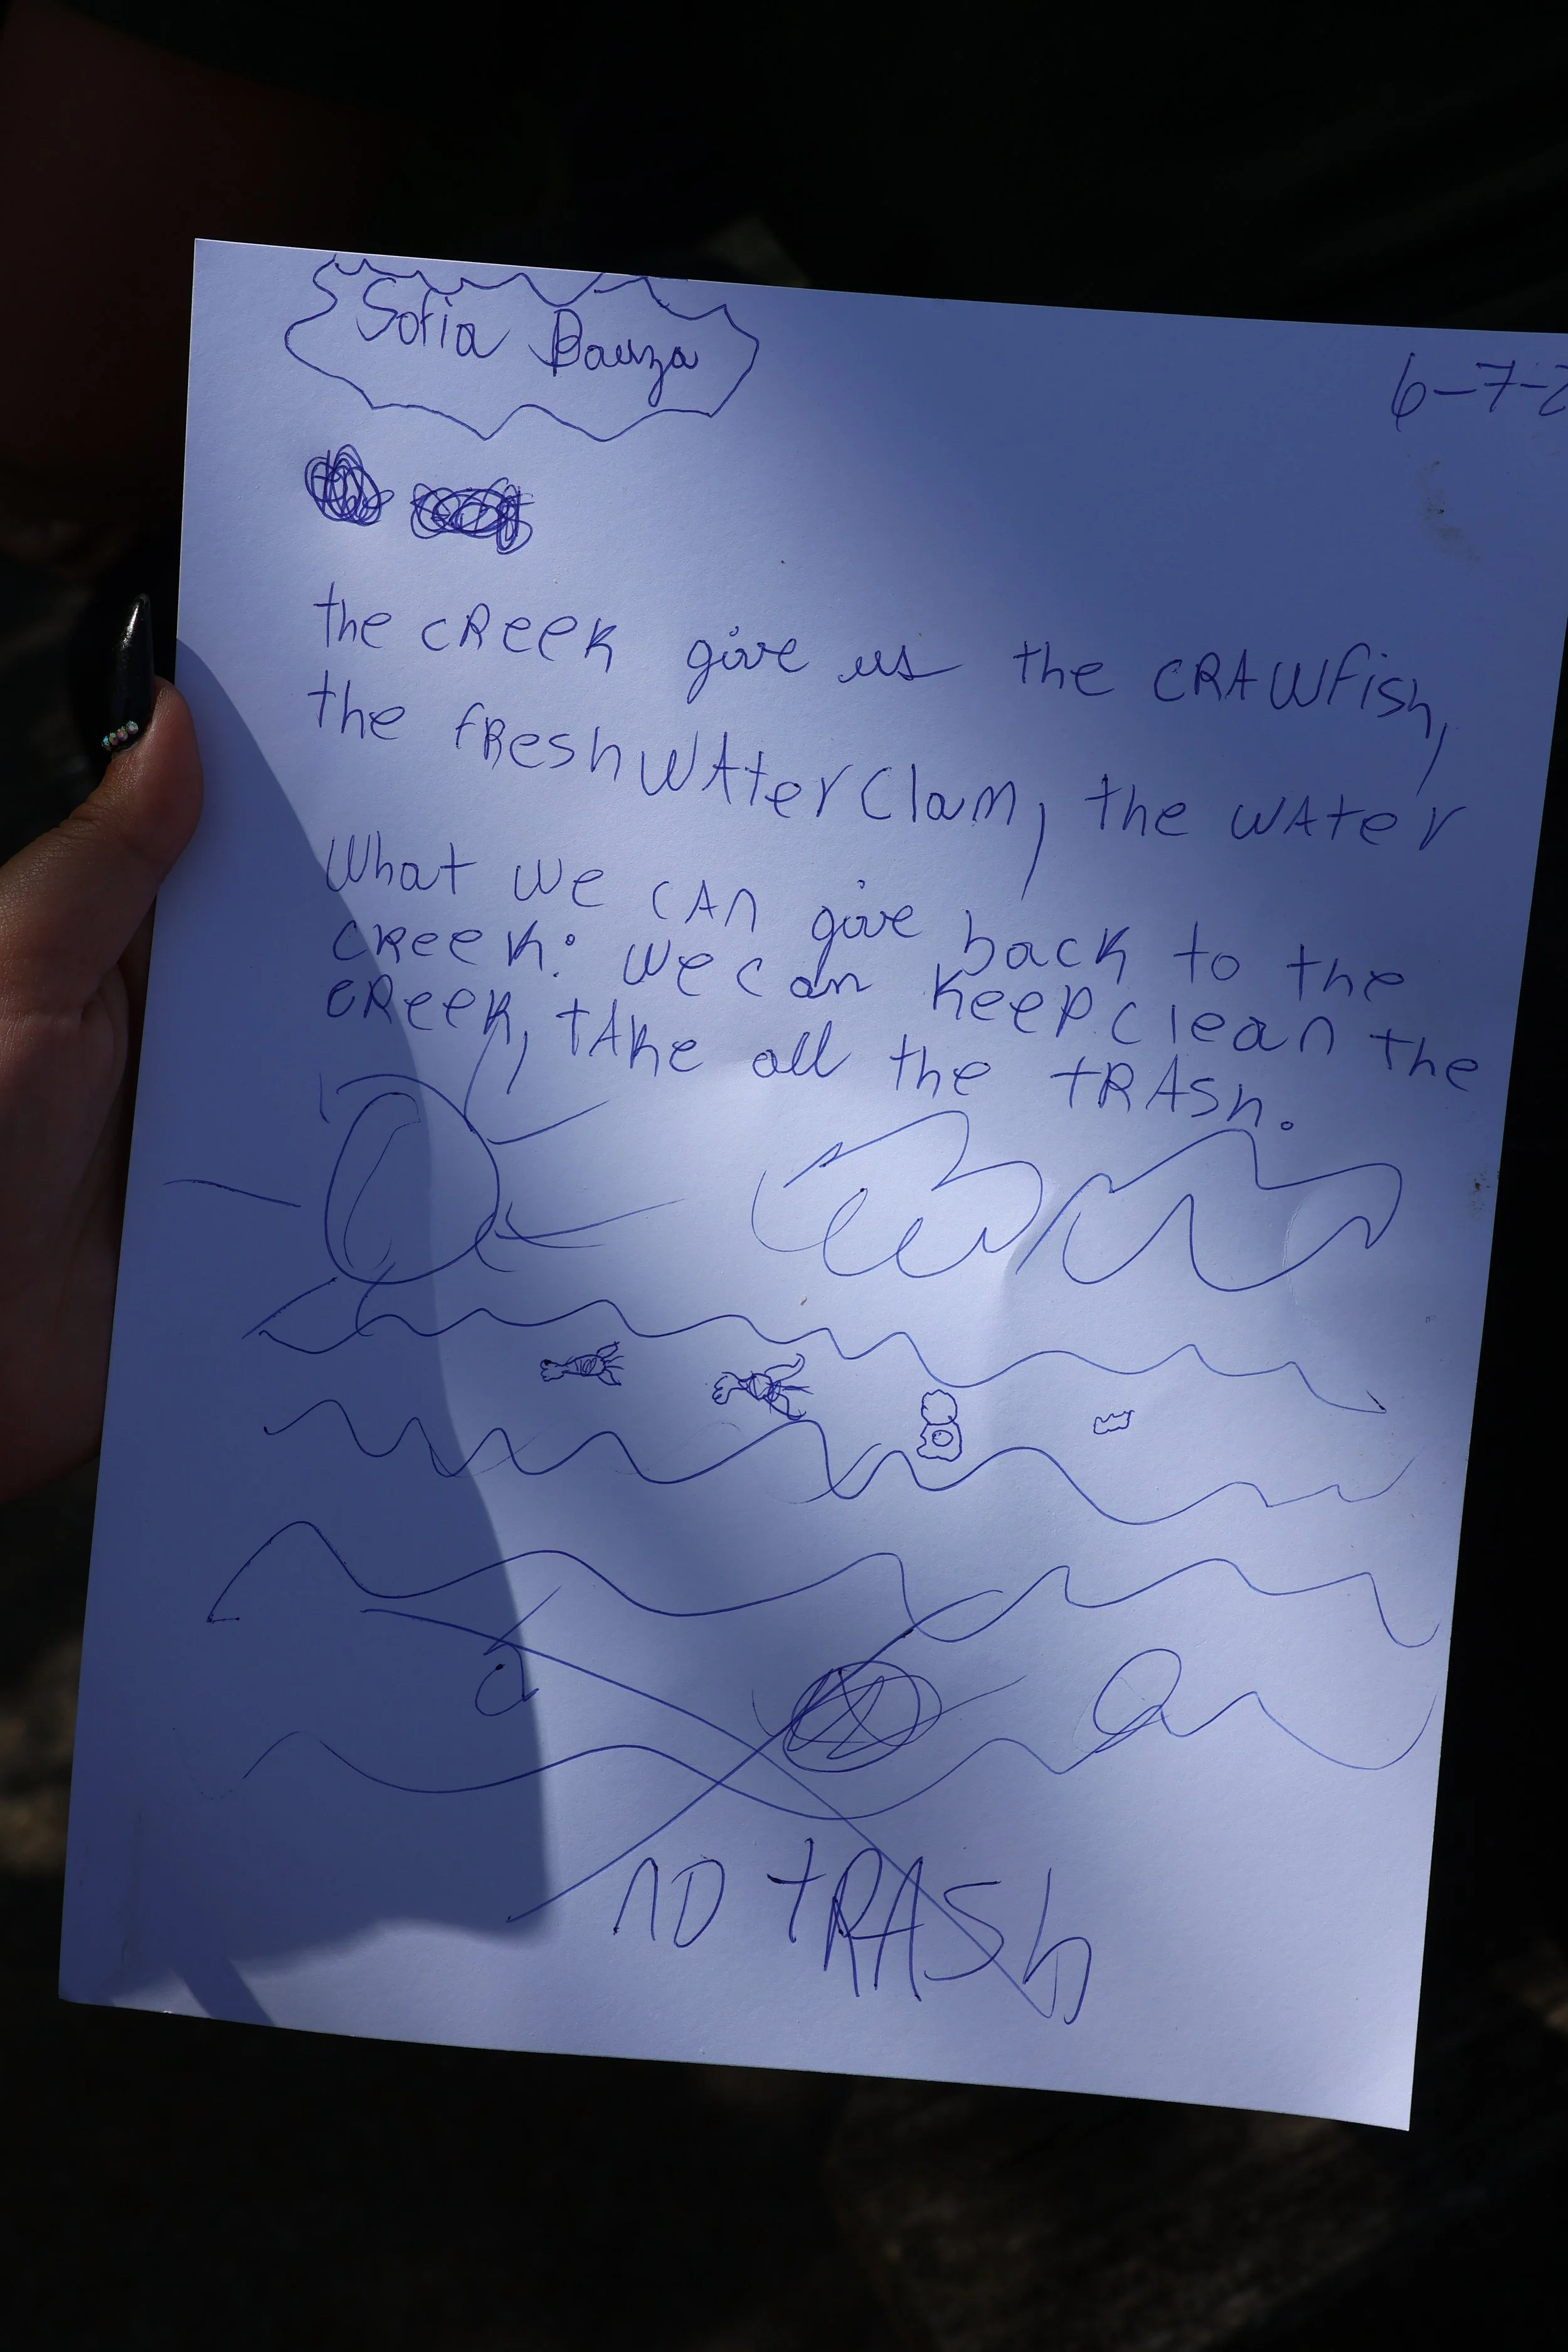 Sofia Bauza
6-7-2
the CReeK give us the CRAWfish,
the fResh WAter Clam, the WAter
What we CAn give back to the
CReeK: We can Keep clean the
CReeK, tAKe all the tRASh.
no tRASh